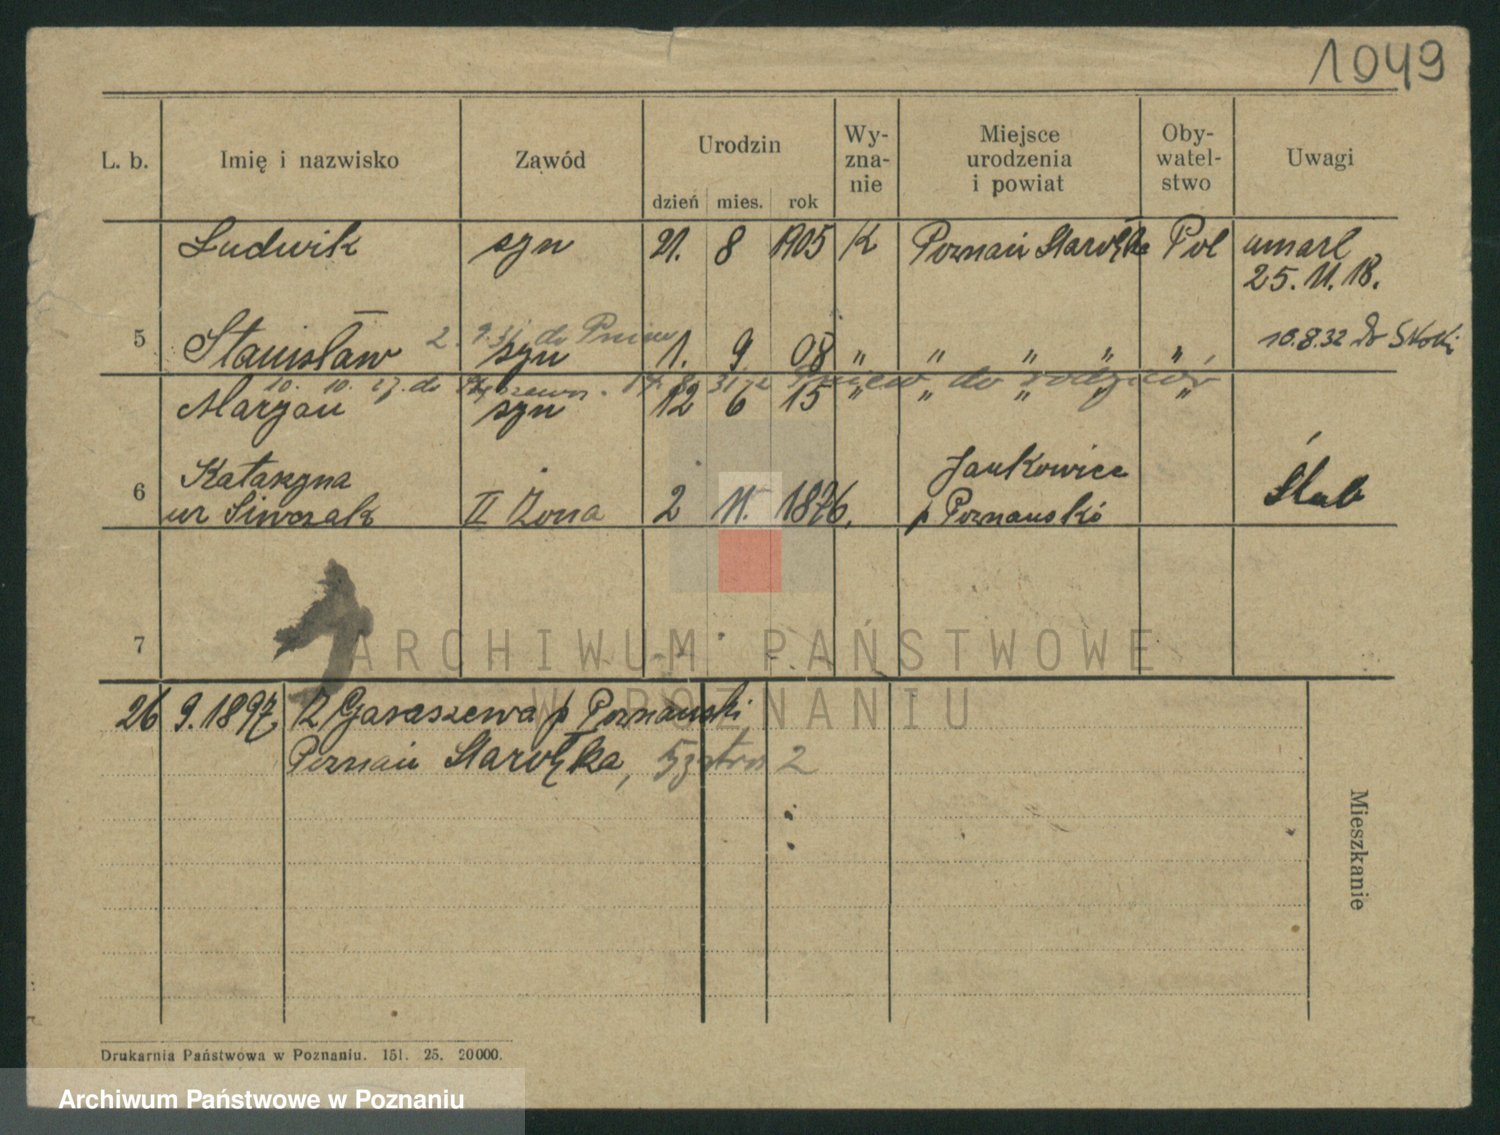 1049
L. b. Imię i nazwisko Zawód Urodzin dzień mies. rok Wy-zna-nie Miejsce urodzenia i powiat Oby-watel-stwo Uwagi
Ludwik syn 21. 8 1905 K Poznań Starołęka Pol umarł
25. 11. 18.
2. 9. 31 do Pniew
5 Stanisław syn 1. 9 08 " " " " " 10.8.32 do Skoki
10. 10. 27. do 31 Pniew do rodziców
Marjan syn 12 6 15 " " " " "
Katarzyna Jankowice
6 ur Siwczak II Żona 2 11. 1876. p Poznański Ślub
7
26 9. 1897 Z Garaszewa p Poznański
Poznań Starołęka, 2
Mieszkanie
Drukarnia Państwowa w Poznaniu. 151. 25. 20000.
ARCHIWUM PAŃSTWOWE
W POZNANIU
Archiwum Państwowe w Poznaniu